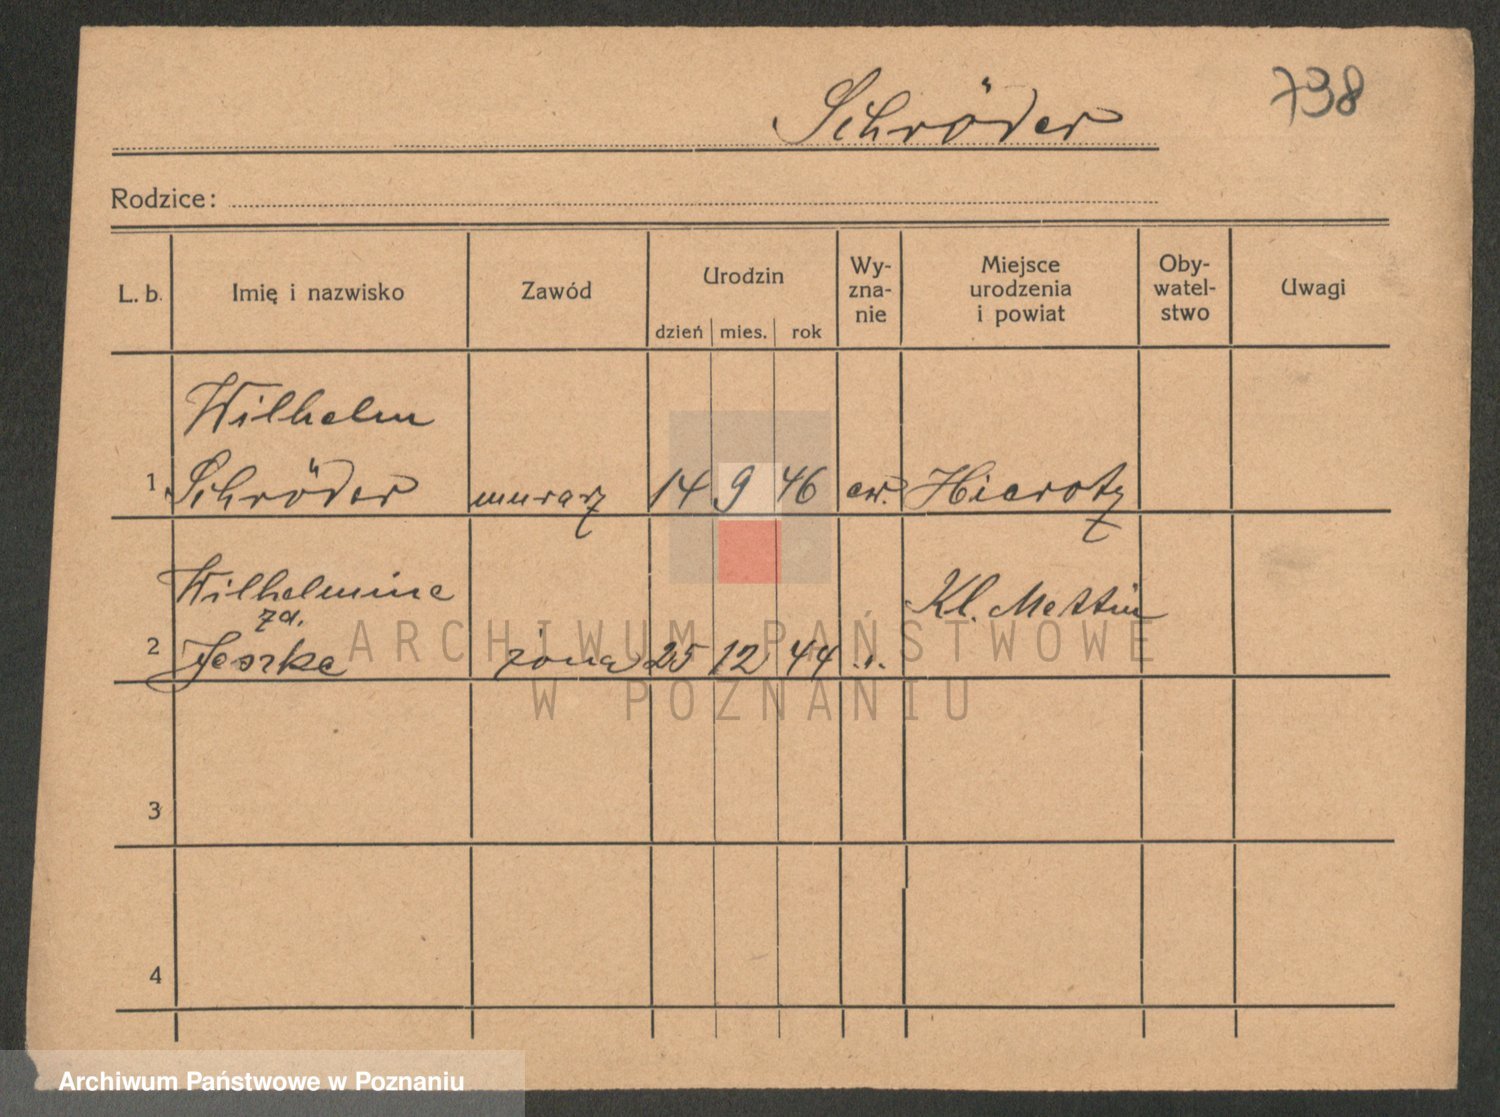 Schröder
738
Rodzice:
L. b. Imię i nazwisko Zawód Urodzin dzień mies. rok Wy- zna- nie Miejsce urodzenia i powiat Oby- watel- stwo Uwagi
Wilhelm
1 Schröder murarz 14 9 46 ew.
Wilhelmine Kl. Mettin
zd.
2 Jeszke żona 25 12 44 „
3
4
ARCHIWUM PAŃSTWOWE
W POZNANIU
Archiwum Państwowe w Poznaniu